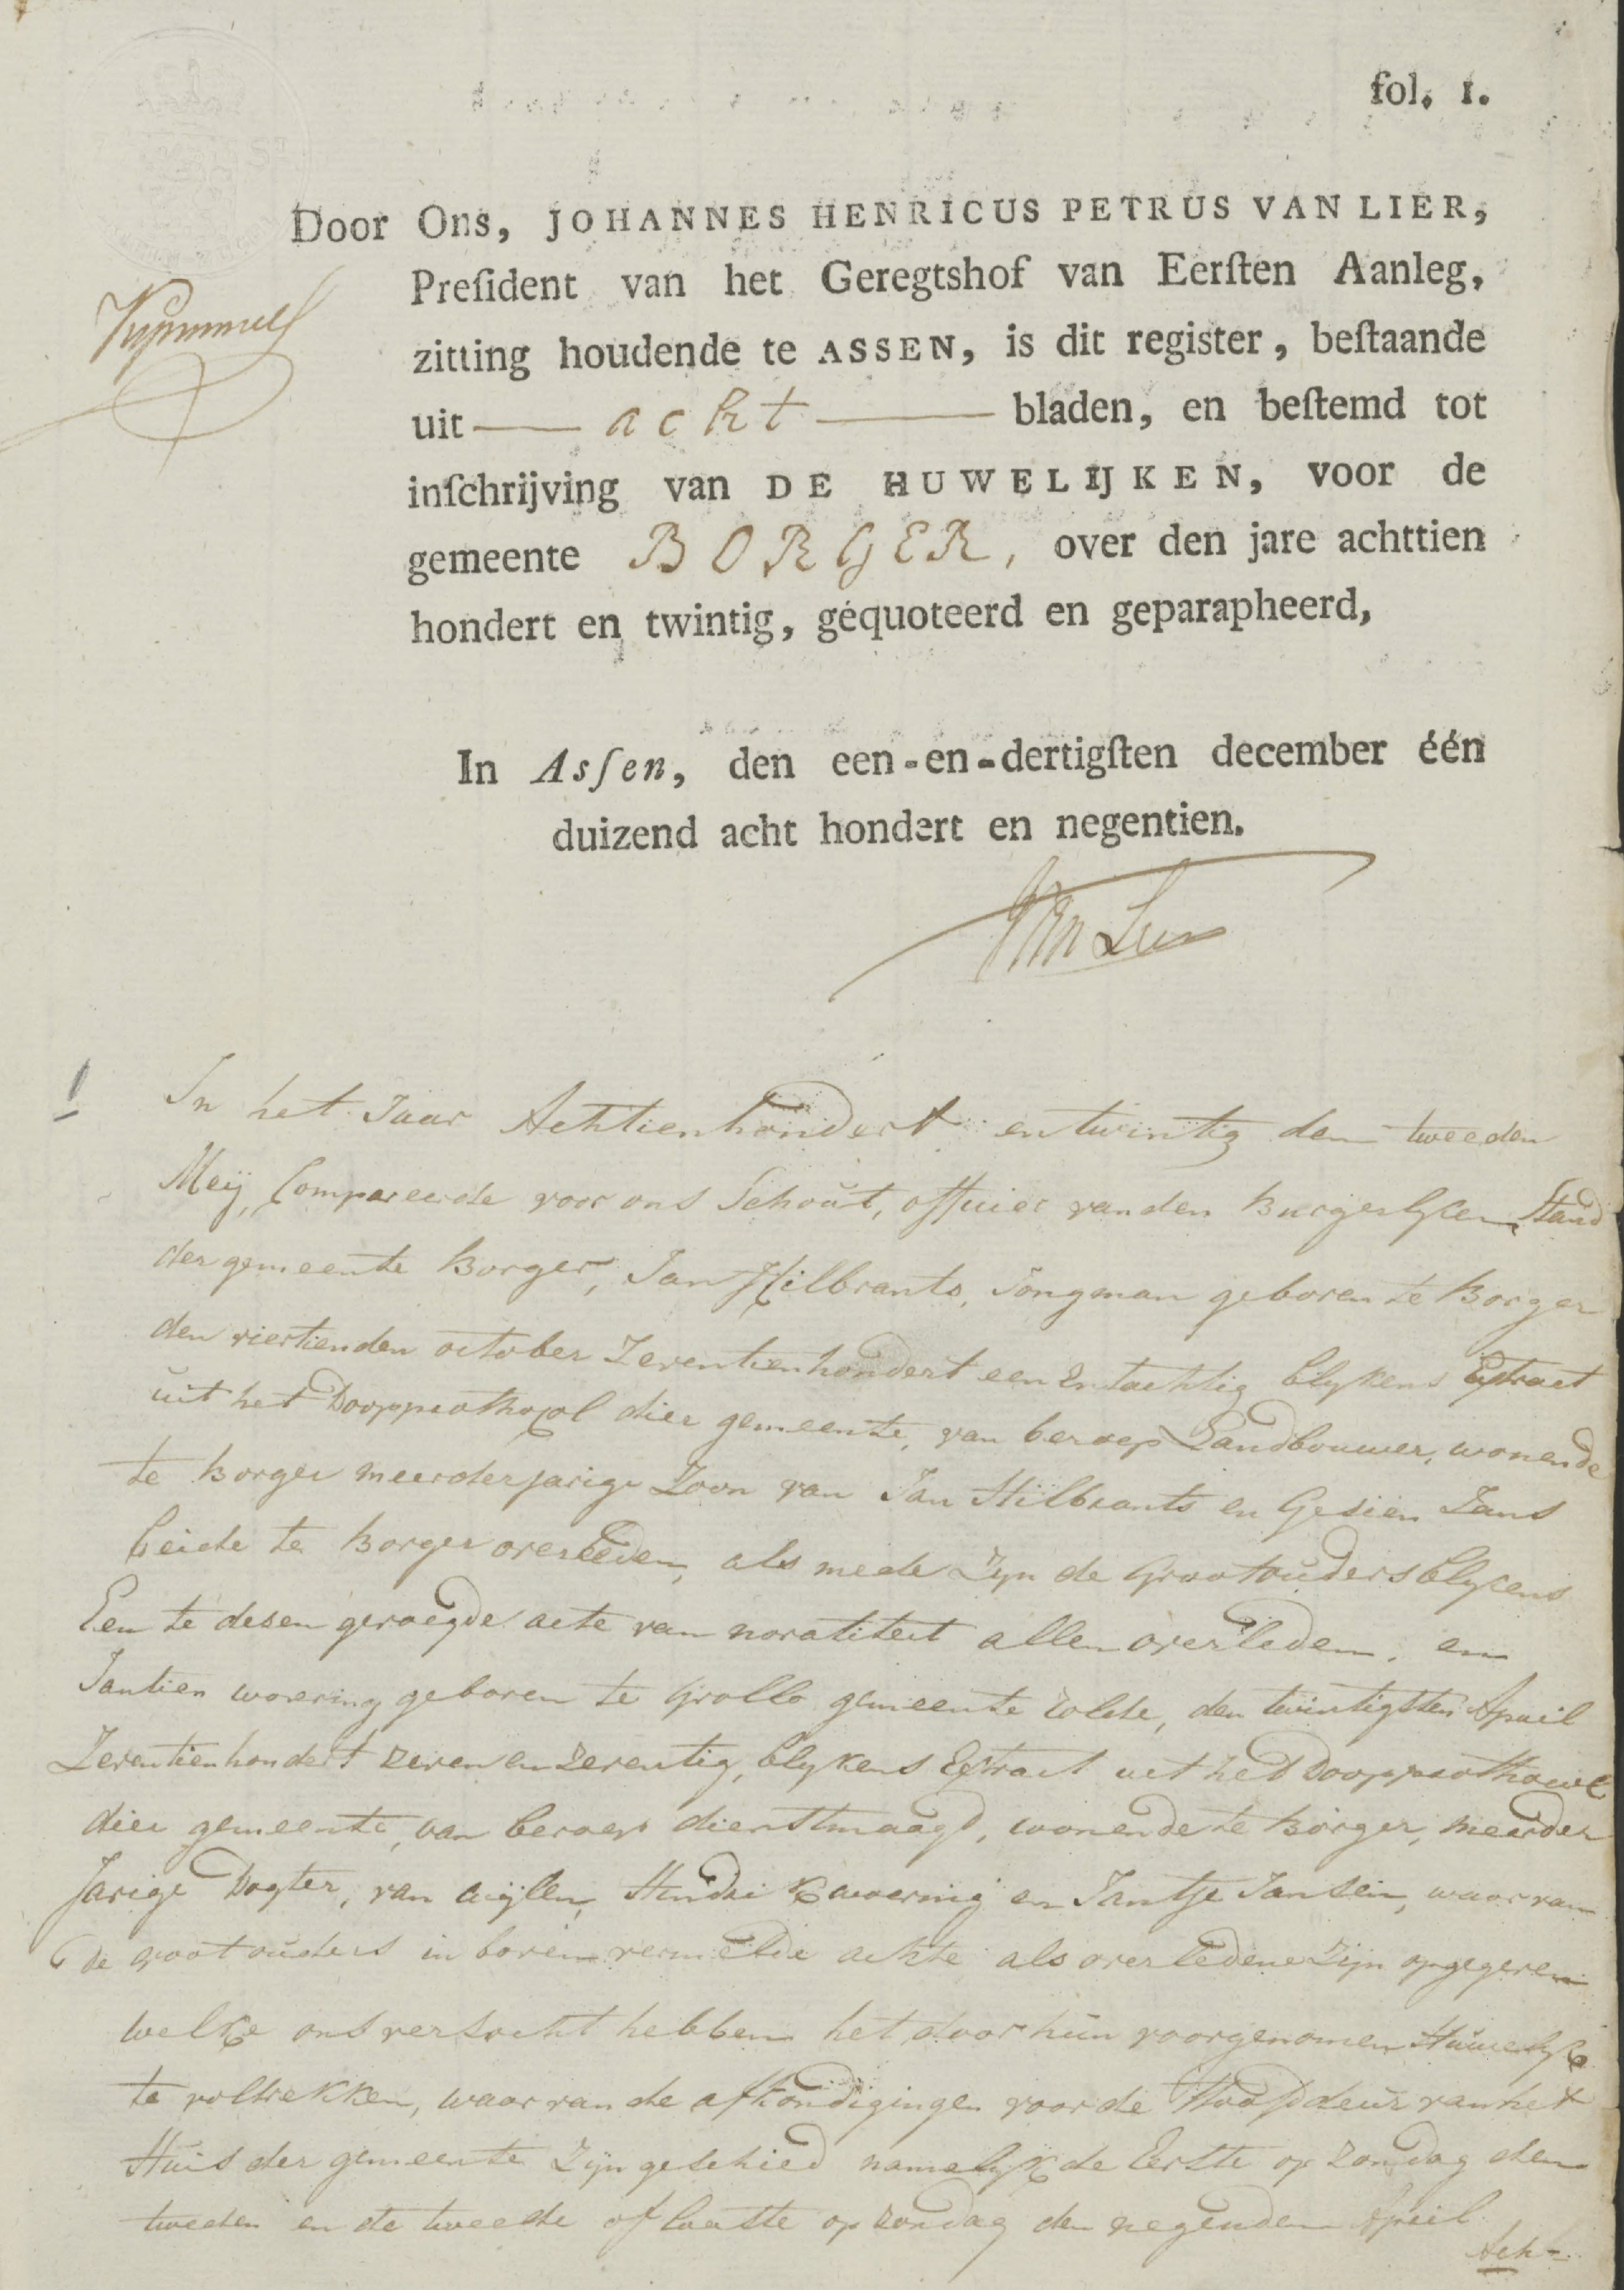 fol. 1.
Door Ons, JOHANNES HENRICUS PETRUS VAN LIER,
Preſident van het Geregtshof van Eerſten Aanleg,
zitting houdende te ASSEN, is dit register, beſtaande
uit — acht — bladen, en beſtemd tot
inſchrijving van DE HUWELIJKEN, voor de
gemeente BORGER, over den jare achttien
hondert en twintig, géquoteerd en geparapheerd,
In Asſen, den een-en-dertigſten december één
duizend acht hondert en negentien.
Van Lier
1
In het Jaar Achtienhondert en twintig den tweeden
Meij, Compareerde voor ons Schout, officier van den Burgerlyken Stand
der gemeente Borger, Jan Hilbrants, Jongman geboren te Borger
den viertienden october Zeventienhondert een en tachtig blykens Extract
uit het Doopprothocol dier gemeente, van beroep Landbouwer, wonende
te Borger meerderjarige Zoon van Jan Hilbrants en Gesien Jans
beide te Borger overleden, als mede Zyn de Grootouders blykens
Een te desen gevoegde acte van notariteit allen overleden, en
Jantien geboren te Grollo gemeente Rolde, den twintigsten April
Zeventienhondert zeven en zeventig, blykens Extract uit het Doopprothocol
dier gemeente, van beroep dienstmaagd, wonende te Borger, meerder
Jarige Dogter, van wijlen, en Jantje Jansen, waarvan
de grootouders in boven vermelde ackte als overledene zijn opgegeven
welke ons versocht hebben het door hun voorgenomen Huwelyk
te voltrekken, waarvan de afkondigingen voor de Hoofddeur van het
Huis der gemeente Zijn geschied namelyk de Eerste op zondag den
tweeden en de tweede of laatste op zondag den negenden April
Ach-